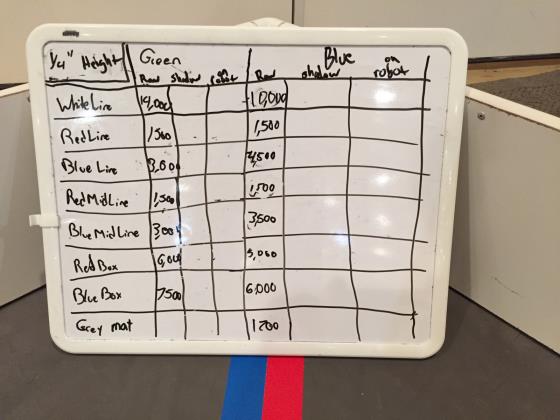 1/4" Height Green Blue
Raw shadow on robot Raw shadow on robot
White Line 19,000 10,000
Red Line 1,500 1,500
Blue Line 3,000 4,500
Red Mid Line 1,500 1,500
Blue Mid Line 3,000 3,500
Red Box 6,000 5,000
Blue Box 7500 6,000
Grey mat 1200